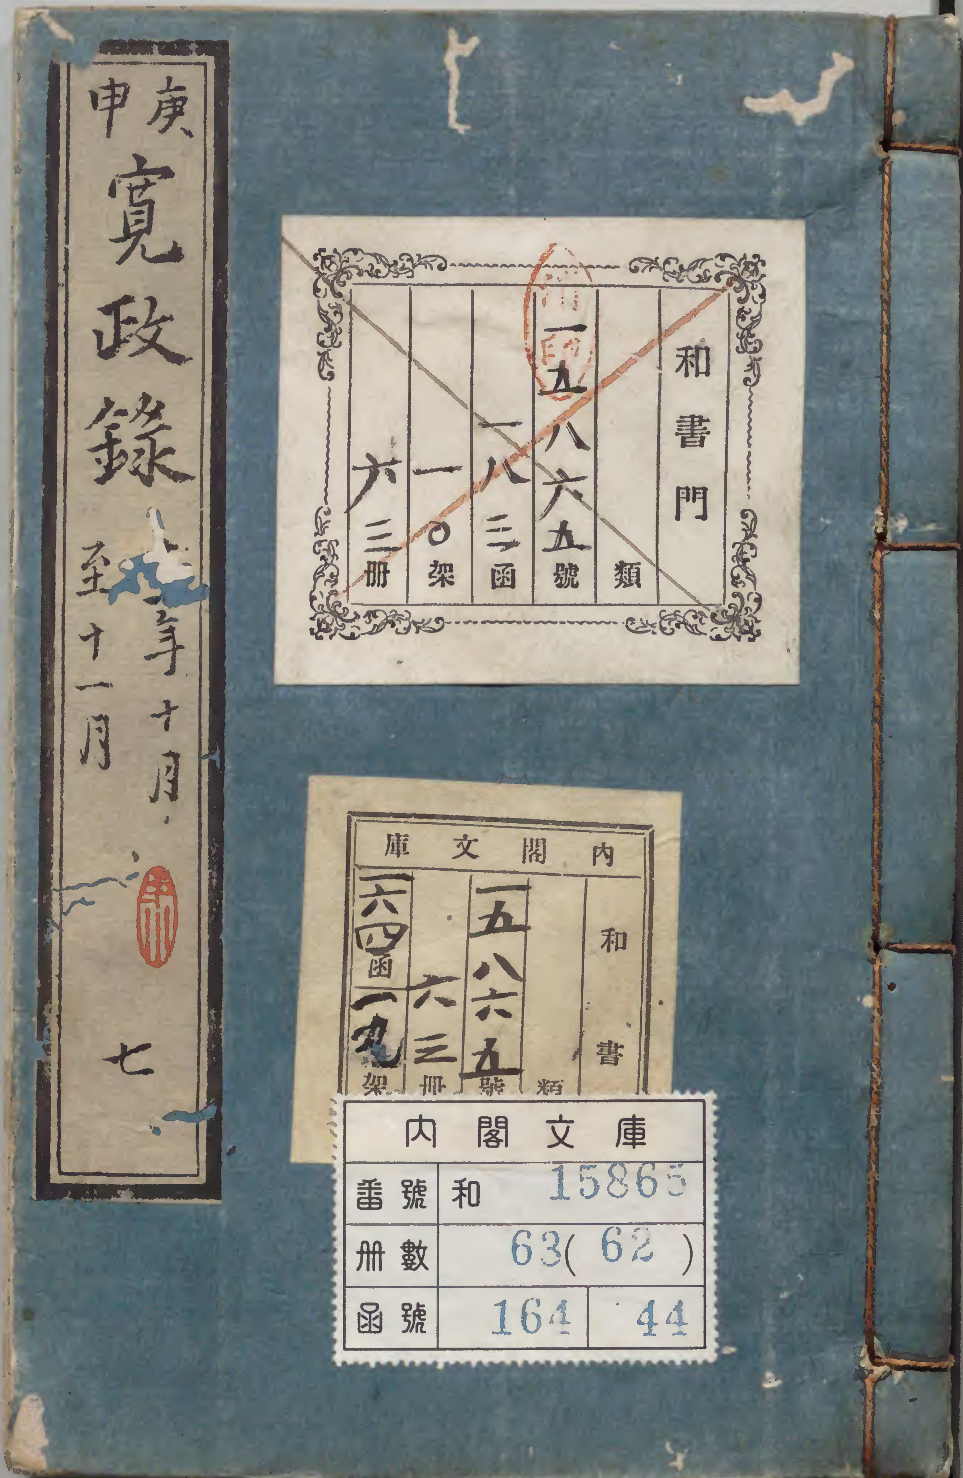 庚申
寛政錄
年十月
至十一月
七
和書門
類
一五八六五號
一八三函
一〇架
六三冊
內閣文庫
和書
類
一五八六五號
六三冊
一六四函
一九架
內閣文庫
番號 和 15865
冊數 63(62)
函號 164 44